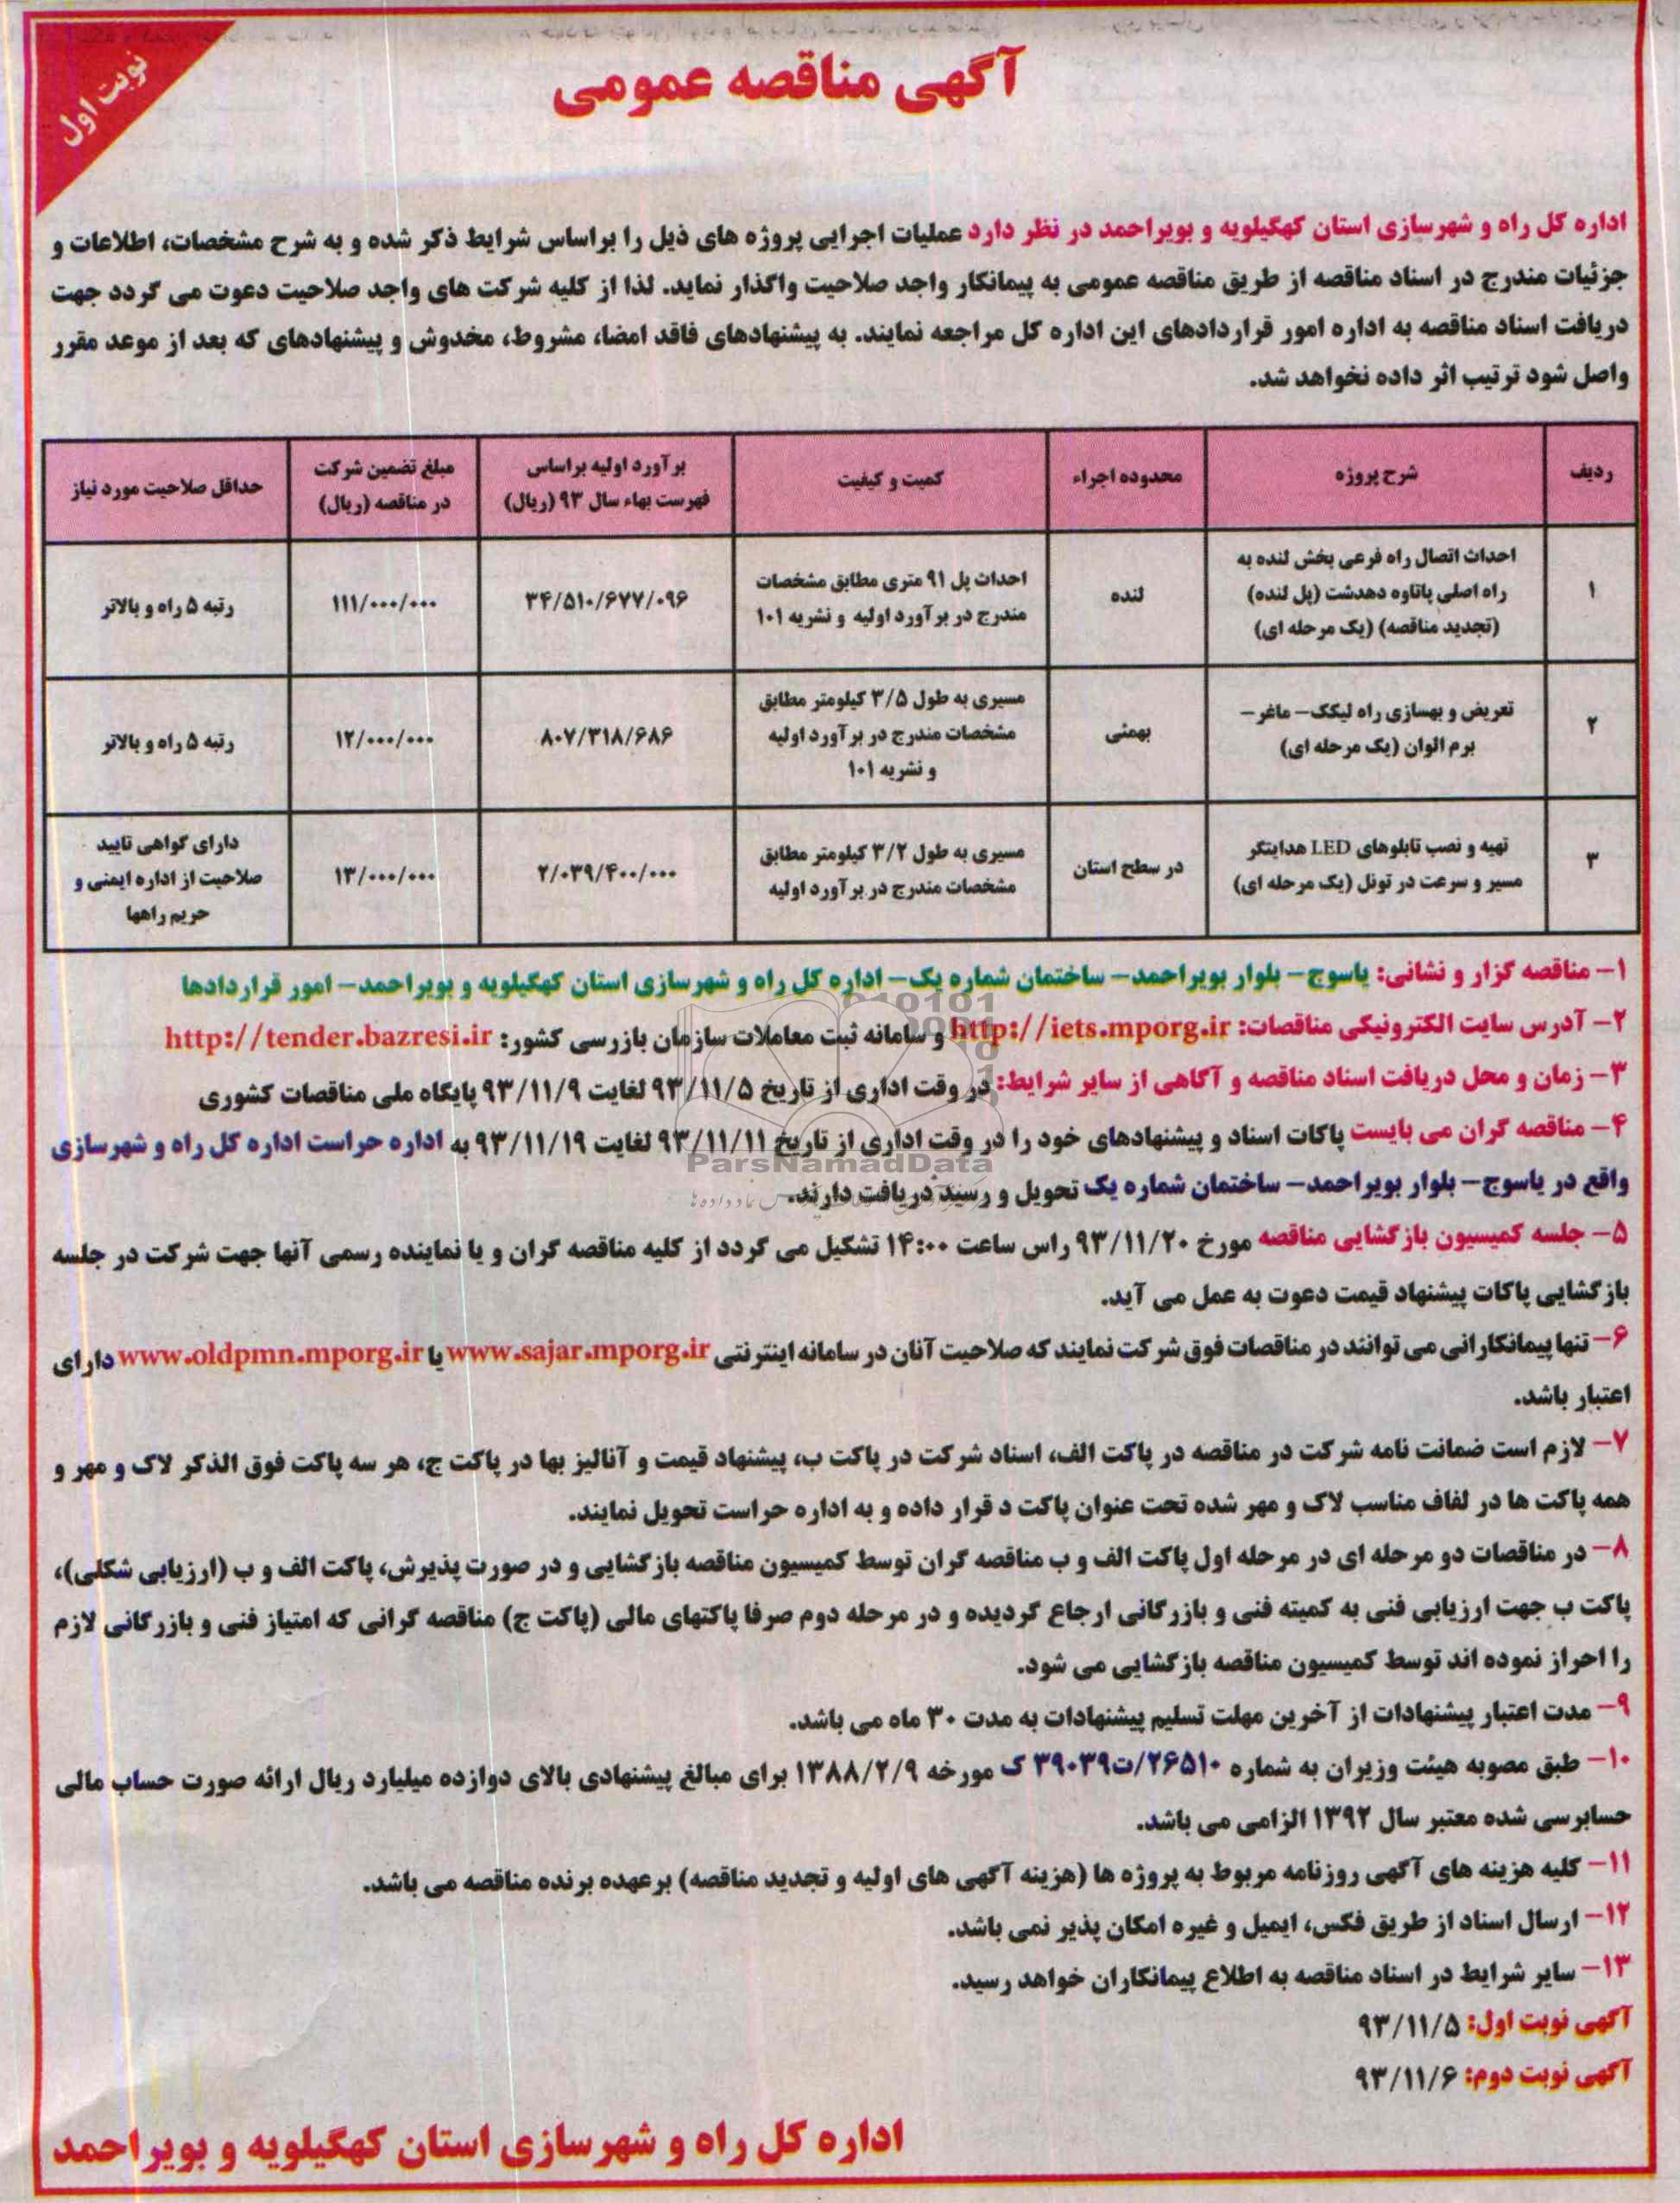 نوبت اول
آگهی مناقصه عمومی
اداره کل راه و شهرسازی استان کهگیلویه و بویراحمد در نظر دارد عملیات اجرایی پروژه های ذیل را براساس شرایط ذکر شده و به شرح مشخصات، اطلاعات و
جزئیات مندرج در اسناد مناقصه از طریق مناقصه عمومی به پیمانکار واجد صلاحیت واگذار نماید. لذا از کلیه شرکت های واجد صلاحیت دعوت می گردد جهت
دریافت اسناد مناقصه به اداره امور قراردادهای این اداره کل مراجعه نمایند. به پیشنهادهای فاقد امضا، مشروط، مخدوش و پیشنهادهای که بعد از موعد مقرر
واصل شود ترتیب اثر داده نخواهد شد.
ردیف | شرح پروژه | محدوده اجراء | کمیت و کیفیت | برآورد اولیه براساس فهرست بهاء سال ۹۳ (ریال) | مبلغ تضمین شرکت در مناقصه (ریال) | حداقل صلاحیت مورد نیاز
۱ | احداث اتصال راه فرعی بخش لنده به راه اصلی پاتاوه دهدشت (پل لنده) (تجدید مناقصه) (یک مرحله ای) | لنده | احداث پل ۹۱ متری مطابق مشخصات مندرج در برآورد اولیه و نشریه ۱۰۱ | ۳۴/۵۱۰/۶۷۷/۰۹۶ | ۱۱۱/۰۰۰/۰۰۰ | رتبه ۵ راه و بالاتر
۲ | تعریض و بهسازی راه لیکک- ماغر- برم الوان (یک مرحله ای) | بهمئی | مسیری به طول ۳/۵ کیلومتر مطابق مشخصات مندرج در برآورد اولیه و نشریه ۱۰۱ | ۸۰۷/۳۱۸/۶۸۶ | ۱۲/۰۰۰/۰۰۰ | رتبه ۵ راه و بالاتر
۳ | تهیه و نصب تابلوهای LED هدایتگر مسیر و سرعت در تونل (یک مرحله ای) | در سطح استان | مسیری به طول ۳/۲ کیلومتر مطابق مشخصات مندرج در برآورد اولیه | ۲/۰۳۹/۴۰۰/۰۰۰ | ۱۳/۰۰۰/۰۰۰ | دارای گواهی تایید صلاحیت از اداره ایمنی و حریم راهها
۱- مناقصه گزار و نشانی: یاسوج- بلوار بویراحمد- ساختمان شماره یک- اداره کل راه و شهرسازی استان کهگیلویه و بویراحمد- امور قراردادها
۲- آدرس سایت الکترونیکی مناقصات: http://iets.mporg.ir و سامانه ثبت معاملات سازمان بازرسی کشور: http://tender.bazresi.ir
۳- زمان و محل دریافت اسناد مناقصه و آگاهی از سایر شرایط: در وقت اداری از تاریخ ۹۳/۱۱/۵ لغایت ۹۳/۱۱/۹ پایگاه ملی مناقصات کشوری
۴- مناقصه گران می بایست پاکات اسناد و پیشنهادهای خود را در وقت اداری از تاریخ ۹۳/۱۱/۱۱ لغایت ۹۳/۱۱/۱۹ به اداره حراست اداره کل راه و شهرسازی
واقع در یاسوج- بلوار بویراحمد- ساختمان شماره یک تحویل و رسید دریافت دارند.
ParsNamadData
۵- جلسه کمیسیون بازگشایی مناقصه مورخ ۹۳/۱۱/۲۰ راس ساعت ۱۴:۰۰ تشکیل می گردد از کلیه مناقصه گران و یا نماینده رسمی آنها جهت شرکت در جلسه
بازگشایی پاکات پیشنهاد قیمت دعوت به عمل می آید.
۶- تنها پیمانکارانی می توانند در مناقصات فوق شرکت نمایند که صلاحیت آنان در سامانه اینترنتی www.sajar.mporg.ir یا www.oldpmn.mporg.ir دارای
اعتبار باشد.
۷- لازم است ضمانت نامه شرکت در مناقصه در پاکت الف، اسناد شرکت در پاکت ب، پیشنهاد قیمت و آنالیز بها در پاکت ج، هر سه پاکت فوق الذکر لاک و مهر و
همه پاکت ها در لفاف مناسب لاک و مهر شده تحت عنوان پاکت د قرار داده و به اداره حراست تحویل نمایند.
۸- در مناقصات دو مرحله ای در مرحله اول پاکت الف و ب مناقصه گران توسط کمیسیون مناقصه بازگشایی و در صورت پذیرش، پاکت الف و ب (ارزیابی شکلی)،
پاکت ب جهت ارزیابی فنی به کمیته فنی و بازرگانی ارجاع گردیده و در مرحله دوم صرفا پاکتهای مالی (پاکت ج) مناقصه گرانی که امتیاز فنی و بازرگانی لازم
را احراز نموده اند توسط کمیسیون مناقصه بازگشایی می شود.
۹- مدت اعتبار پیشنهادات از آخرین مهلت تسلیم پیشنهادات به مدت ۳۰ ماه می باشد.
۱۰- طبق مصوبه هیئت وزیران به شماره ۲۶۵۱۰/ت۳۹۰۳۹ ک مورخه ۱۳۸۸/۲/۹ برای مبالغ پیشنهادی بالای دوازده میلیارد ریال ارائه صورت حساب مالی
حسابرسی شده معتبر سال ۱۳۹۲ الزامی می باشد.
۱۱- کلیه هزینه های آگهی روزنامه مربوط به پروژه ها (هزینه آگهی های اولیه و تجدید مناقصه) برعهده برنده مناقصه می باشد.
۱۲- ارسال اسناد از طریق فکس، ایمیل و غیره امکان پذیر نمی باشد.
۱۳- سایر شرایط در اسناد مناقصه به اطلاع پیمانکاران خواهد رسید.
آگهی نوبت اول: ۹۳/۱۱/۵
آگهی نوبت دوم: ۹۳/۱۱/۶
اداره کل راه و شهرسازی استان کهگیلویه و بویراحمد